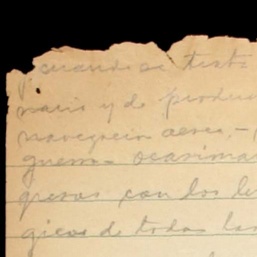 y cuando se trata
nario y de produc
navegación aerea, -
guerra
gresos con los
gicos de todas las